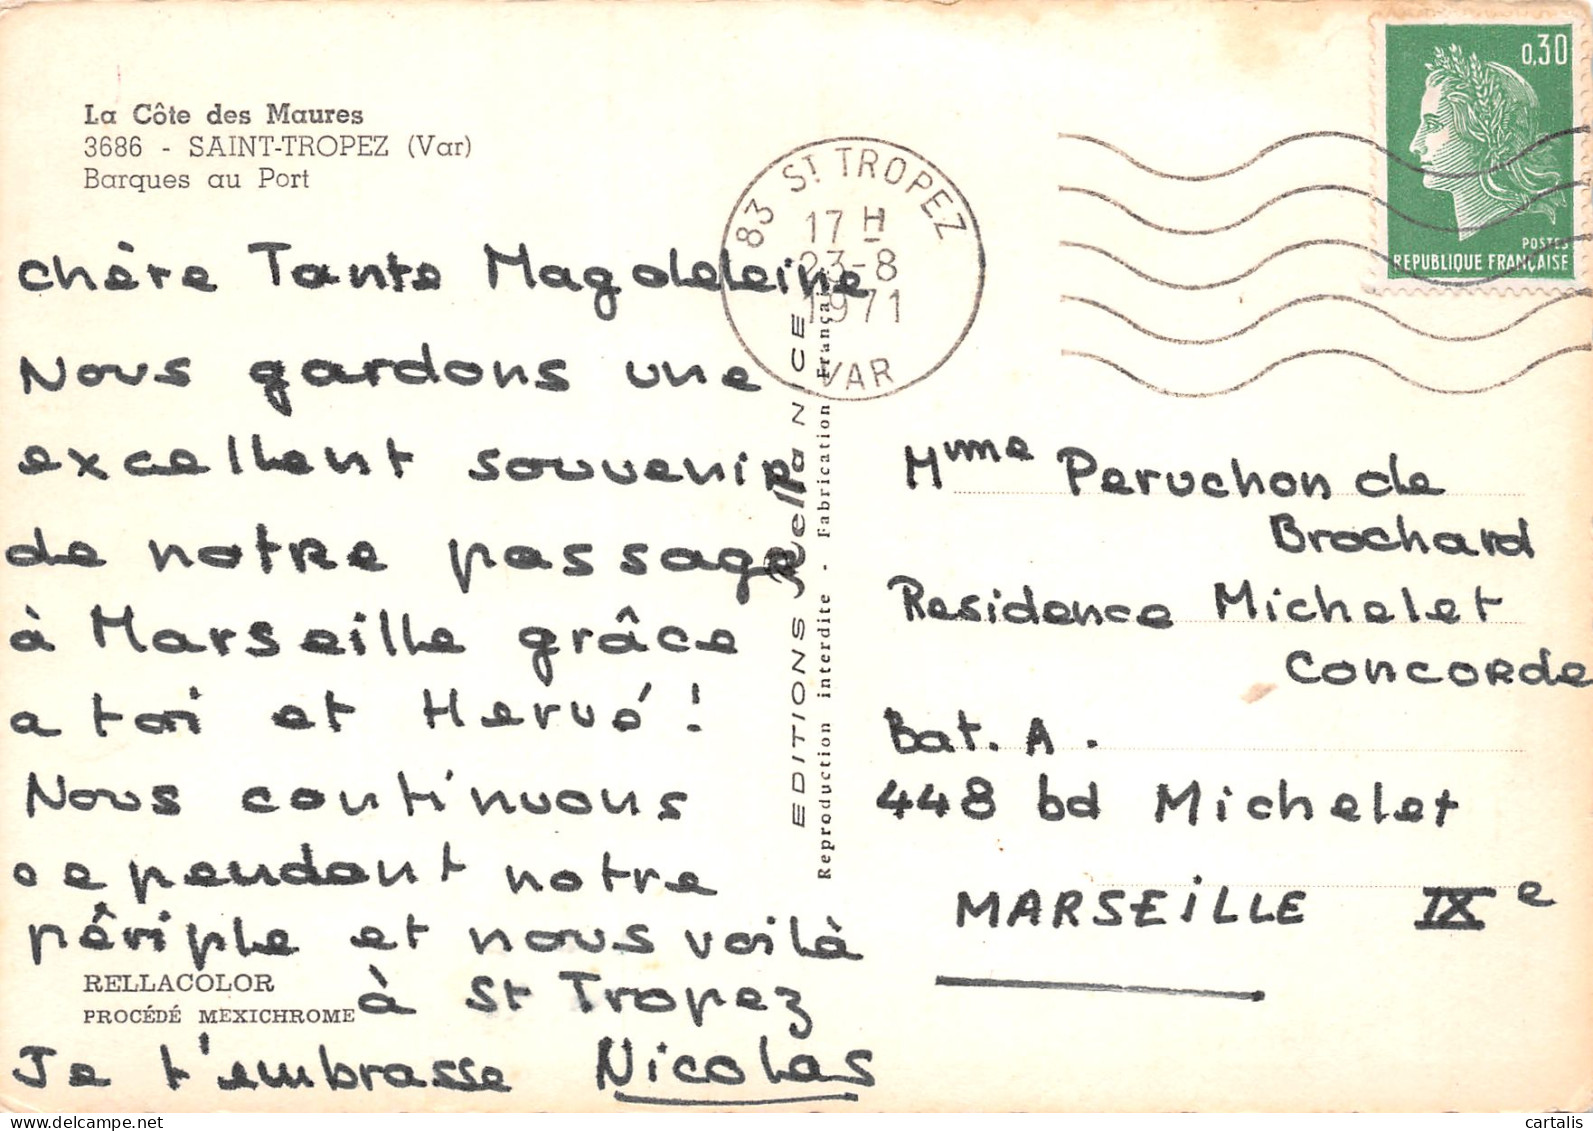 La Côte des Maures
3686 - SAINT-TROPEZ (Var)
Barques au Port
83 St TROPEZ
17 H
23-8
1971
VAR
0,30
POSTES
REPUBLIQUE FRANÇAISE
chère Tante Magdeleine
Nous gardons une
excellent souvenir
de notre passage
à Marseille grâce
a toi et Hervé !
Nous continuons
cependant notre
périple et nous voilà
à St Tropez
Je t'embrasse Nicolas
RELLACOLOR
PROCÉDÉ MEXICHROME
EDITIONS Rella NICE
Reproduction interdite - Fabrication Française
Mme Peruchon de
Brochard
Residence Michelet
Concorde
Bat. A.
448 bd Michelet
MARSEiLLE IXe
cartalis.com